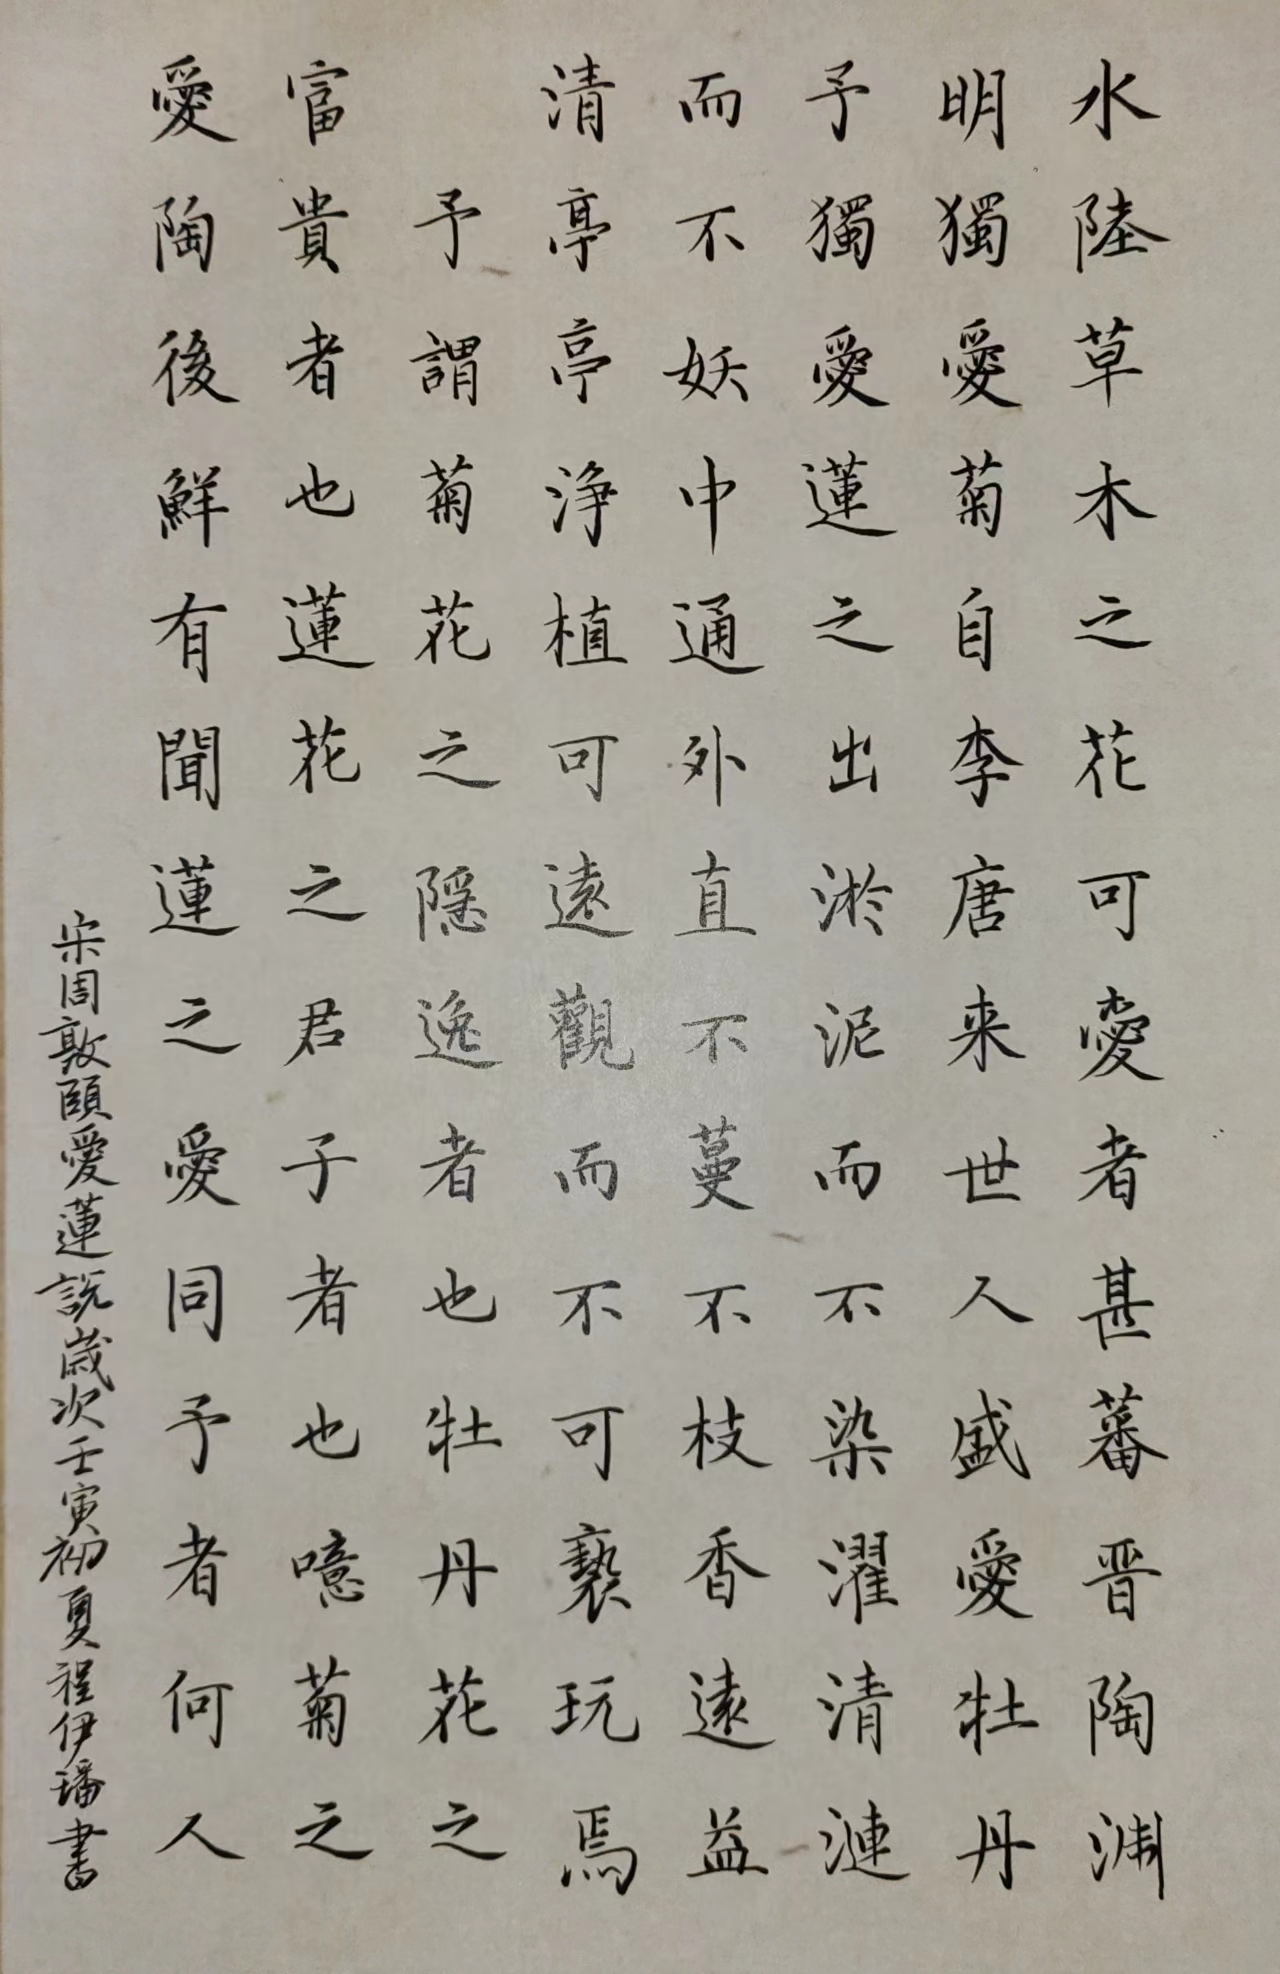 水陸草木之花可愛者甚蕃晋陶淵
明獨愛菊自李唐来世人盛愛牡丹
予獨愛蓮之出淤泥而不染濯清漣
而不妖中通外直不蔓不枝香遠益
清亭亭浄植可遠觀而不可褻玩焉
予謂菊花之隱逸者也牡丹花之
富貴者也蓮花之君子者也噫菊之
愛陶後鮮有聞蓮之愛同予者何人
宋周敦頤愛蓮説歲次壬寅初夏程伊璠書